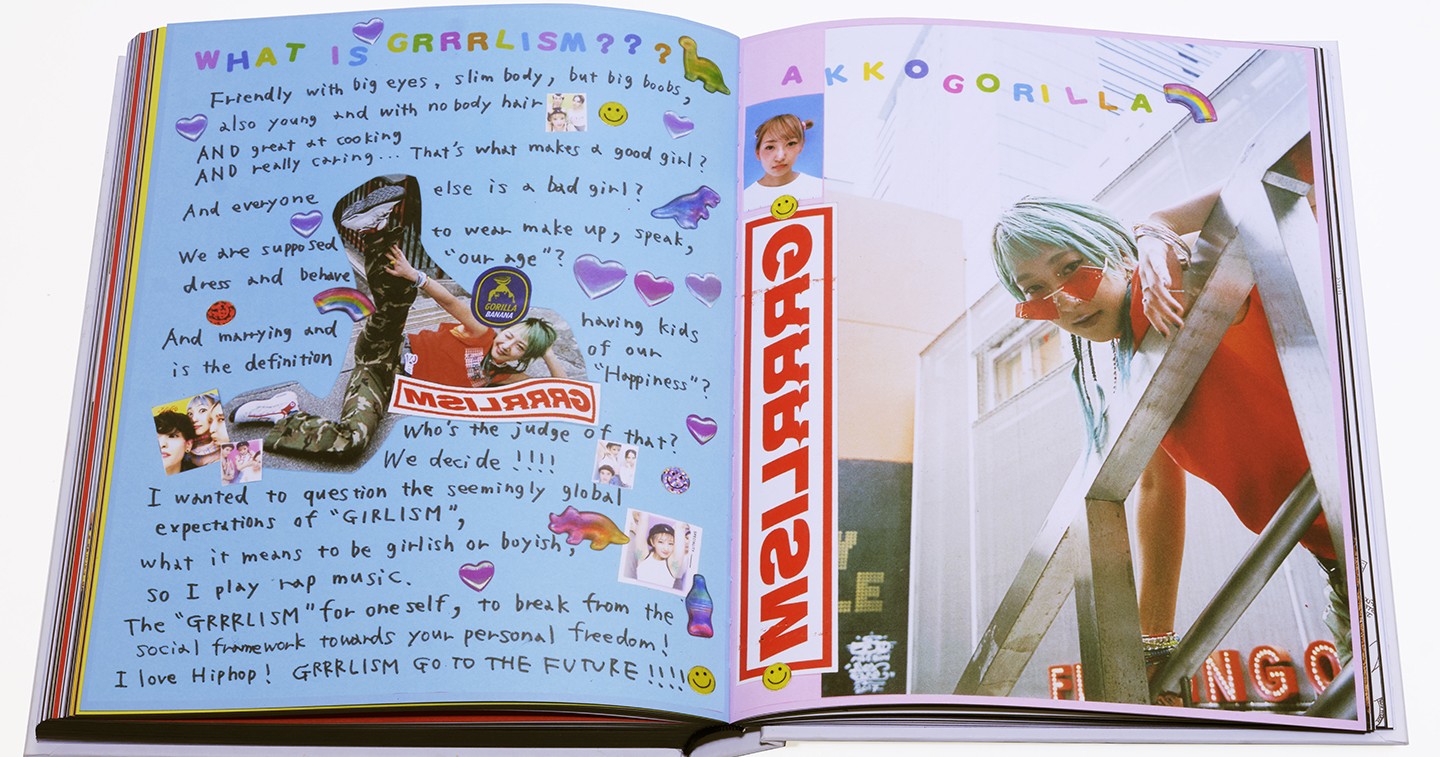 WHAT IS GRRRLISM???
Friendly with big eyes, slim body, but big boobs,
also young and with no body hair
AND great at cooking
AND really caring... That's what makes a good girl?
And everyone else is a bad girl?
We are supposed to wear make up, speak,
dress and behave "our age"?
GORILLA
BANANA
And marrying and having kids
is the definition of our
"Happiness"?
GRRRLISM
Who's the judge of that?
We decide !!!!
I wanted to question the seemingly global
expectations of "GIRLISM",
what it means to be girlish or boyish,
so I play rap music.
The "GRRRLISM" for oneself, to break from the
social framework towards your personal freedom!
I love Hiphop! GRRRLISM GO TO THE FUTURE !!!!
AKKOGORILLA
GRRRLISM